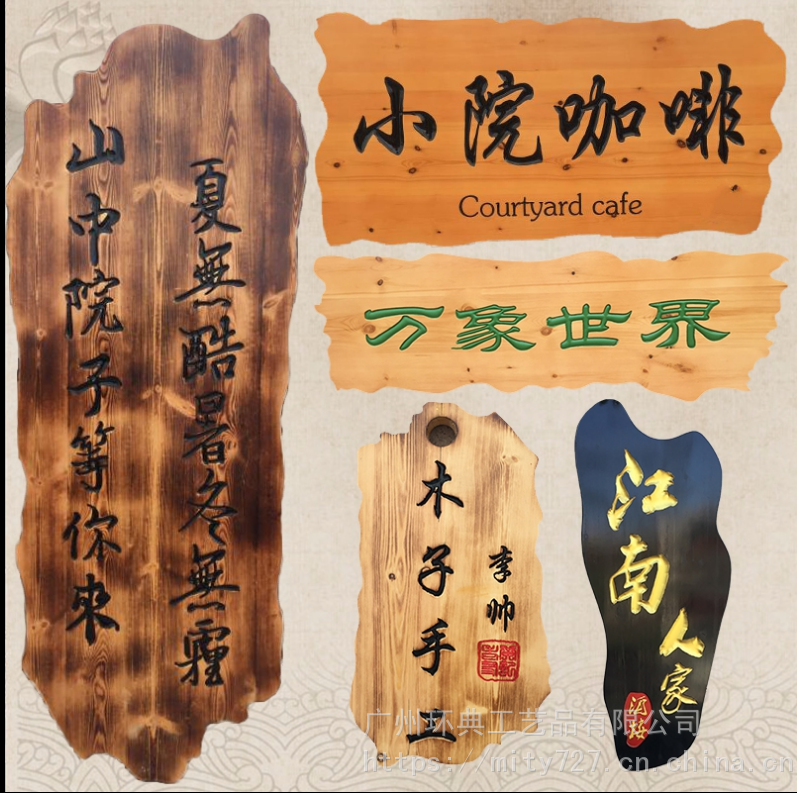 夏無酷暑冬無霾
山中院子等你來
小院咖啡
Courtyard cafe
万象世界
木子手工
李帅
江南
人家
广州环典工艺品有限公司
https://mity727.cn.china.cn